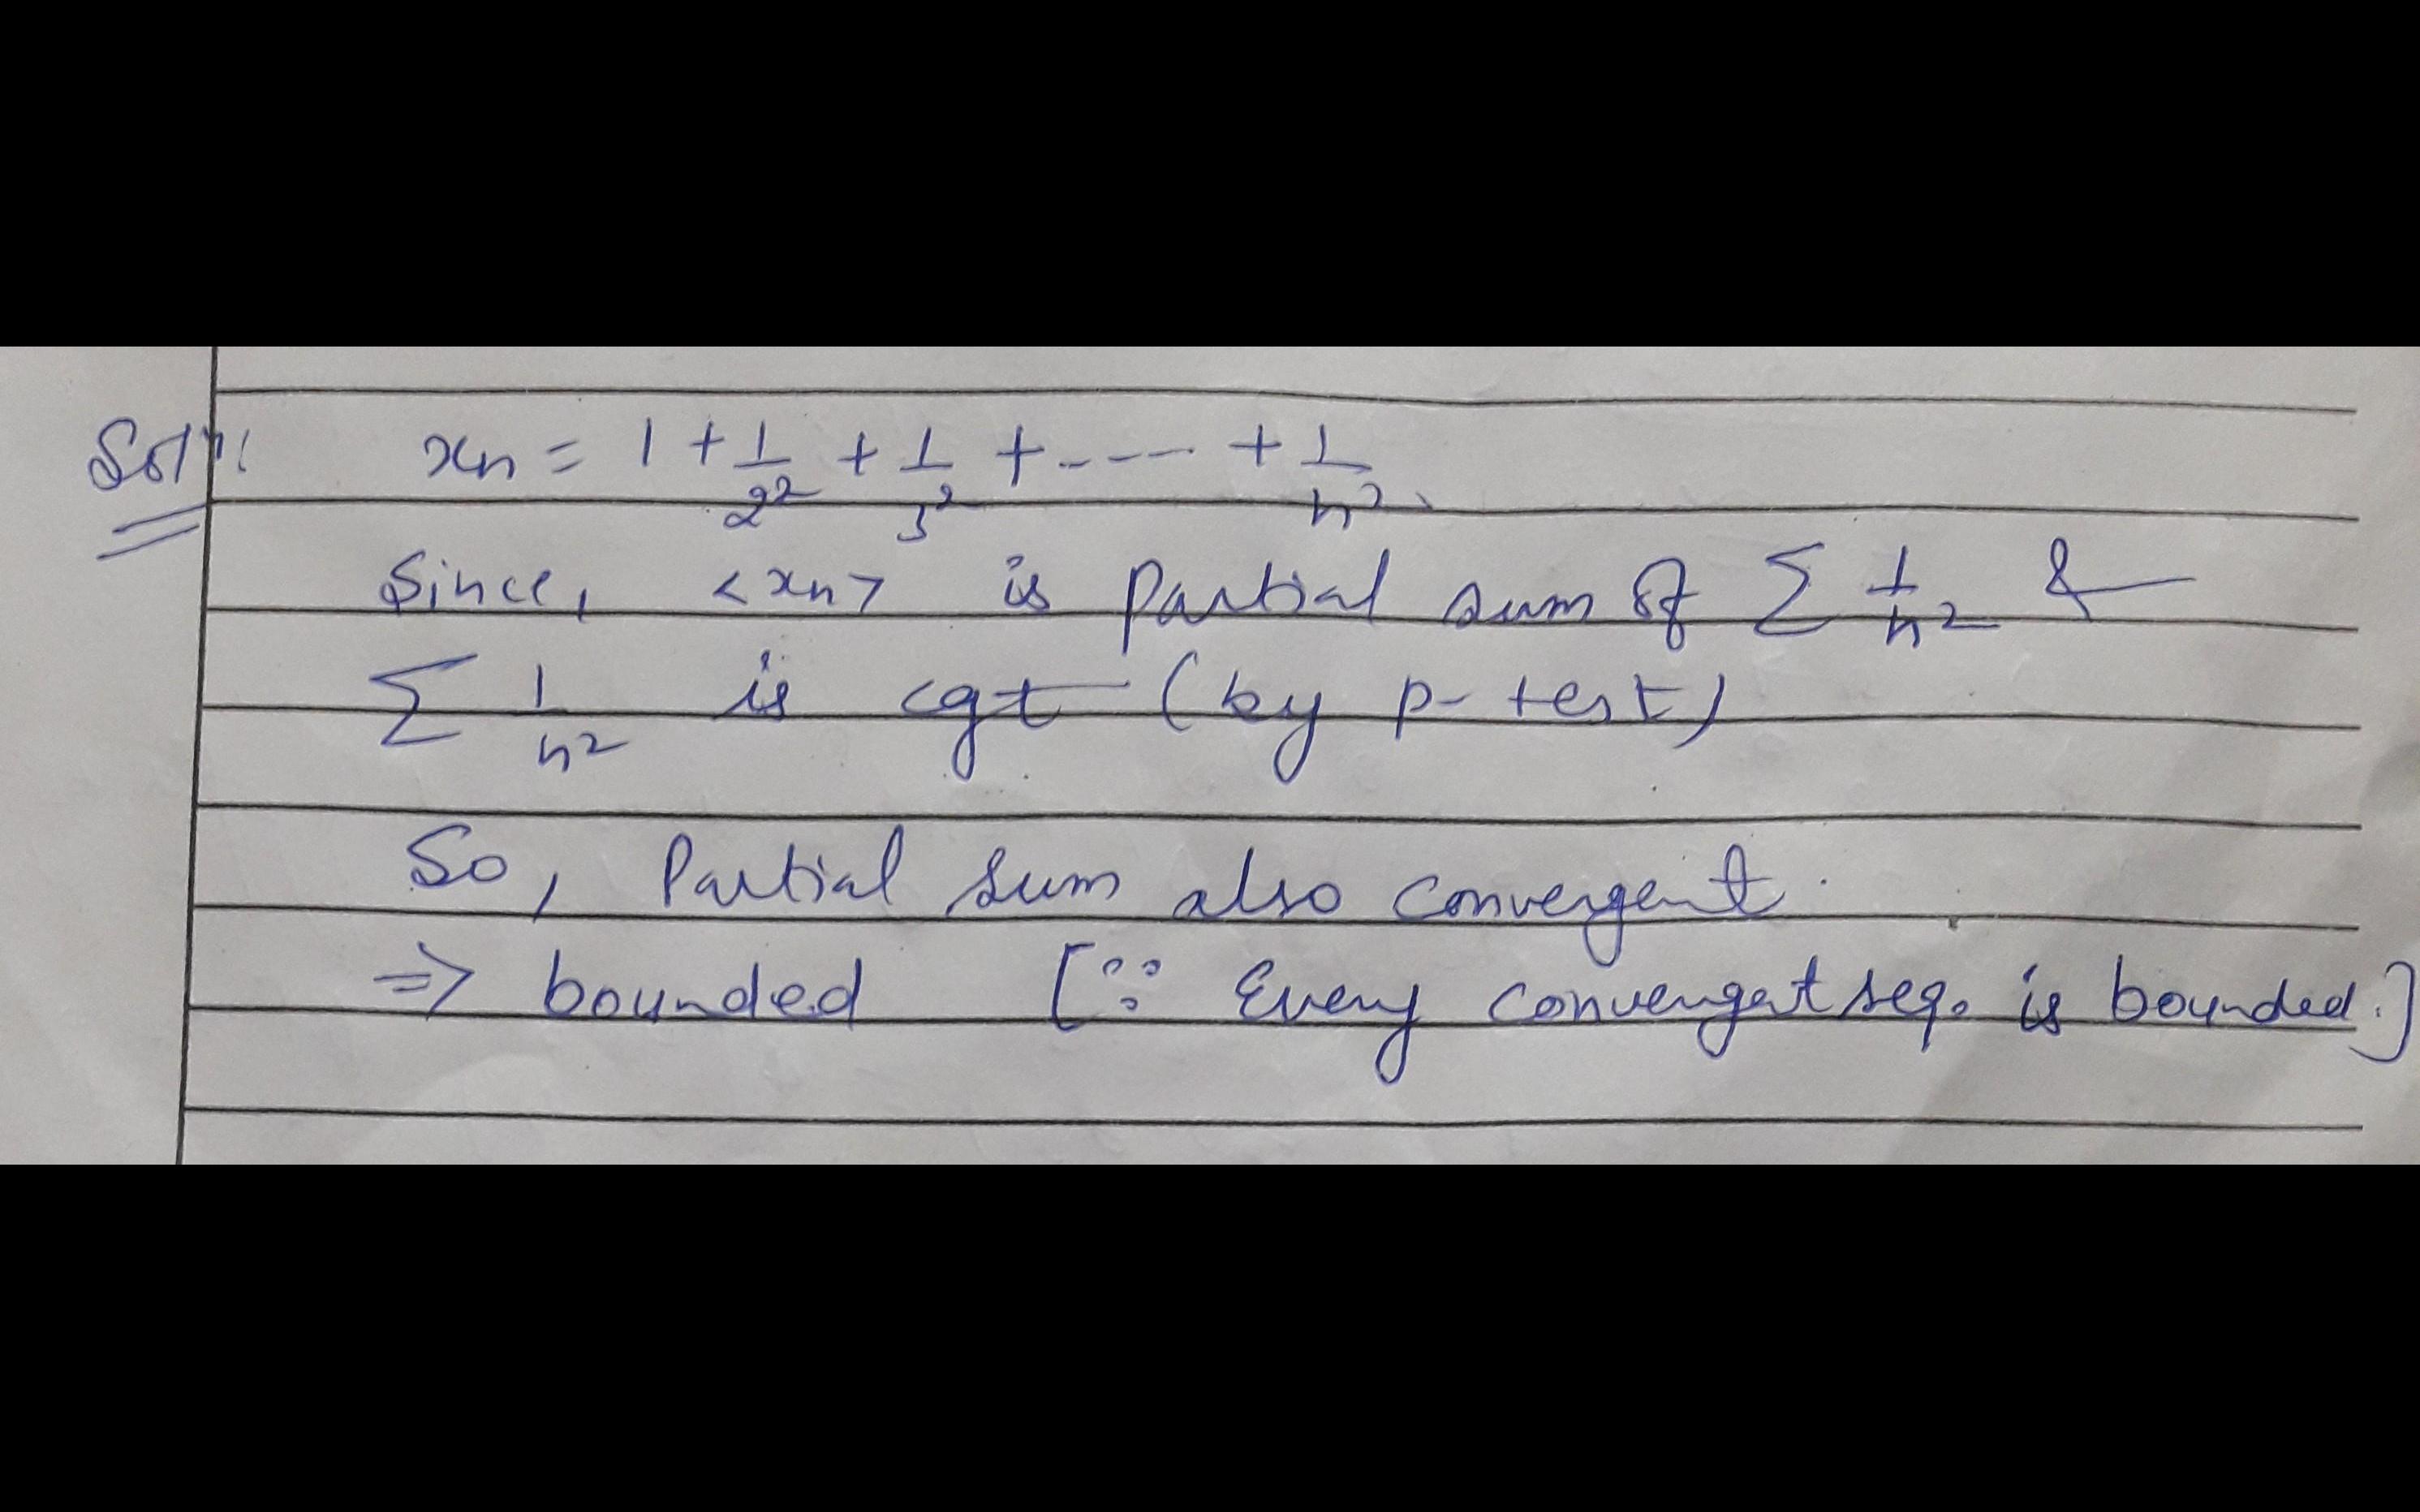 Solⁿ: xn = 1 + 1/2² + 1/3² + ---- + 1/n².
Since, <xn> is Partial sum of Σ 1/n² &
Σ 1/n² is cgt (by p-test)
So, Partial sum also convergent.
=> bounded [∵ Every convergent seq. is bounded.]